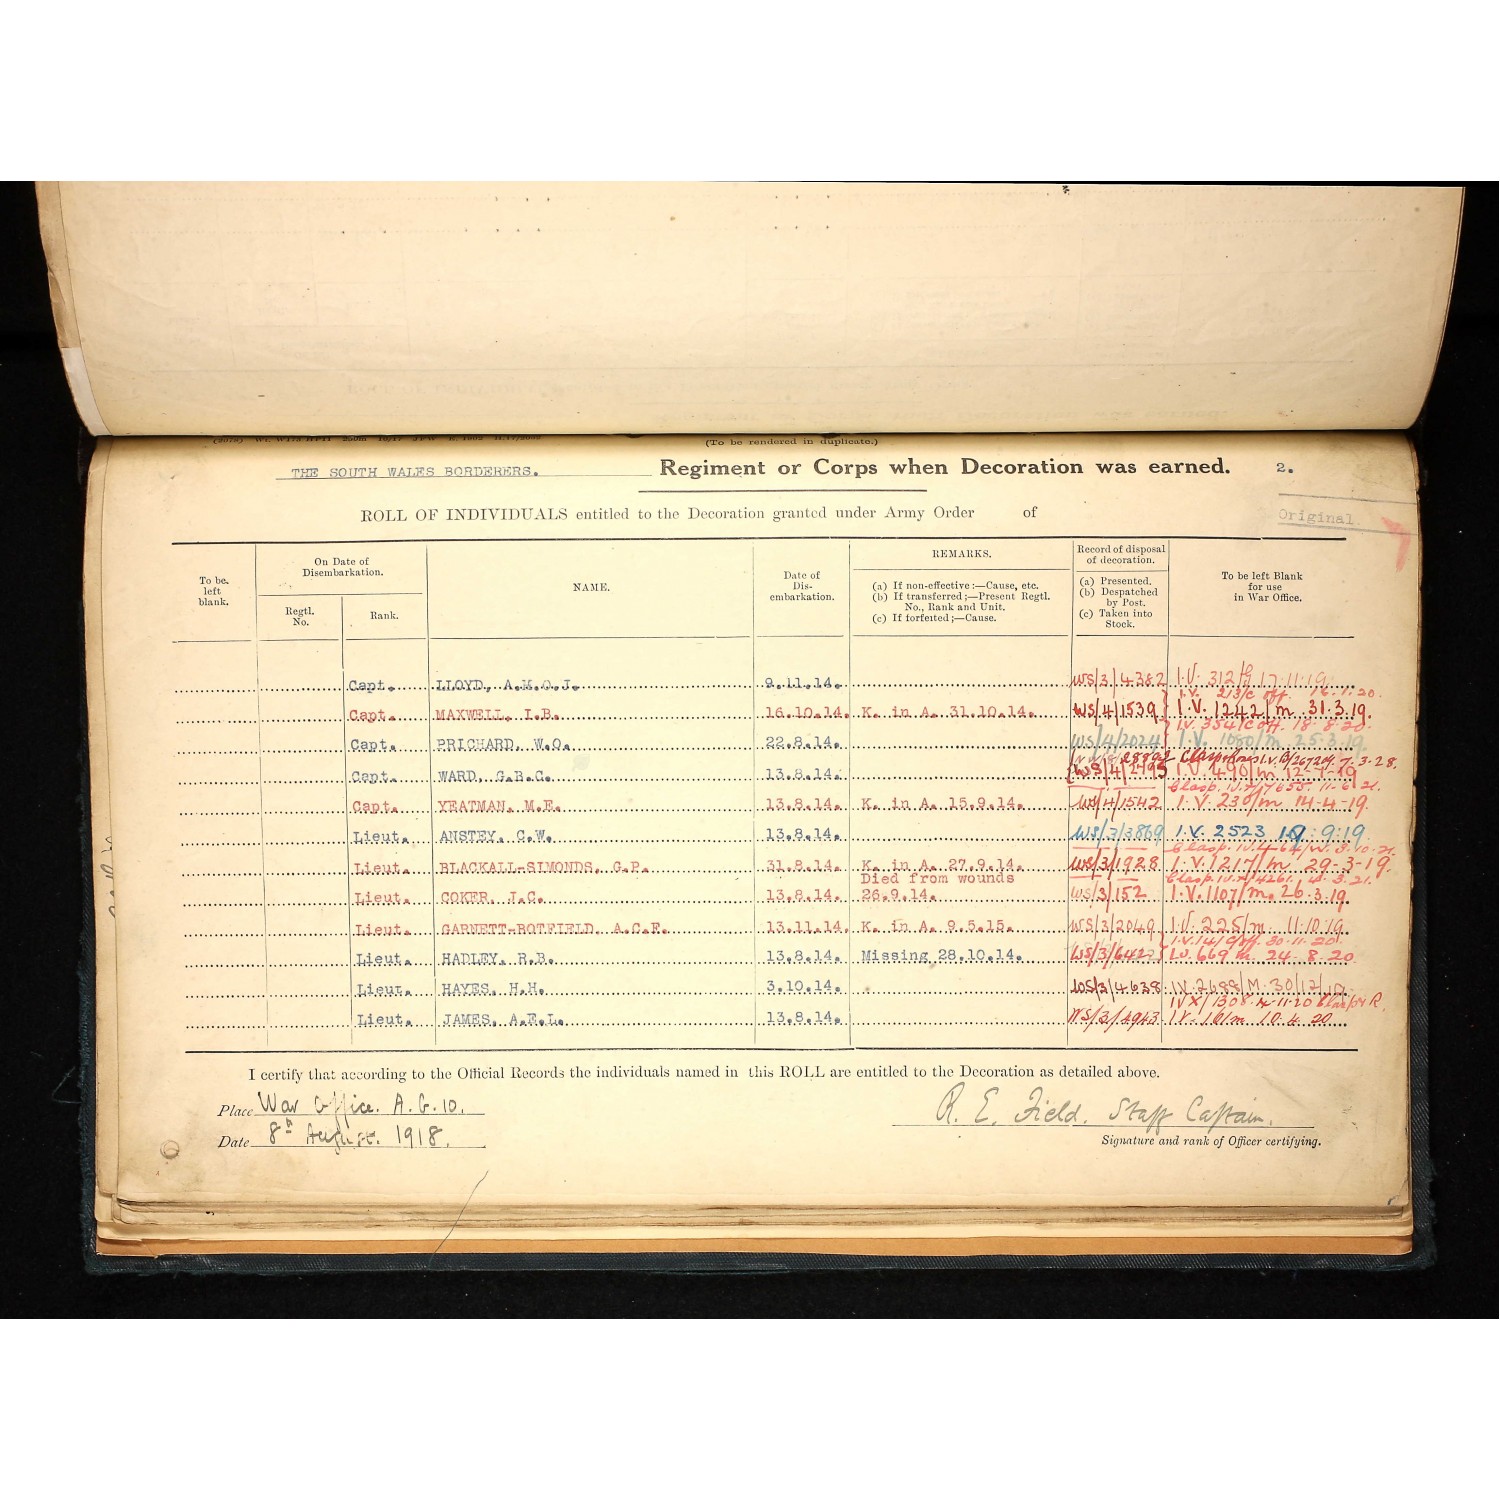 (To be rendered in duplicate.)
THE SOUTH WALES BORDERERS. Regiment or Corps when Decoration was earned. 2.
ROLL OF INDIVIDUALS entitled to the Decoration granted under Army Order of
Original.
To be left blank.
On Date of Disembarkation.
Regtl. No.
Rank.
NAME.
Date of Dis-embarkation.
REMARKS.
(a) If non-effective:—Cause, etc.
(b) If transferred;—Present Regtl. No., Rank and Unit.
(c) If forfeited;—Cause.
Record of disposal of decoration.
(a) Presented.
(b) Despatched by Post.
(c) Taken into Stock.
To be left Blank for use in War Office.
Capt. LLOYD, A.M.O.J. 9.11.14. WS/3/4382 I.V. 312/G 17.11.19
I.V. 213/C off. 16.1.20.
Capt. MAXWELL, I.B. 16.10.14. K. in A. 31.10.14. WS/4/1539 I.V. 1242/m 31.3.19.
I.V. 354/C off. 18.8.20
Capt. PRICHARD, W.O. 22.8.14. WS/4/2024 I.V. 1080/m 25.3.19
7.3.28.
Capt. WARD, G.B.C. 13.8.14. WS/4/2795 I.V. 490/m
11.6.21.
Capt. YEATMAN, M.E. 13.8.14. K. in A. 15.9.14. WS/4/1542 I.V. 230/m 14-4-19.
Lieut. ANSTEY, C.W. 13.8.14. WS/3/3869 I.V. 2523 9.19
Lieut. BLACKALL-SIMONDS, G.P. 31.8.14. K. in A. 27.9.14. WS/3/1928 I.V. 1217/m 29-3-19.
Died from wounds
Lieut. COKER, J.C. 13.8.14. 26.9.14. WS/3/152 I.V. 1107/m. 26.3.19.
Lieut. GARNETT-BOTFIELD, A.C.F. 13.11.14. K. in A. 9.5.15. WS/3/2049 I.V. 225/m. 11.10.19.
30.11.20.
Lieut. HADLEY, R.B. 13.8.14. Missing 28.10.14. WS/3/6422 I.V. 669 m. 24.8.20.
Lieut. HAYES, H.H. 3.10.14. WS/3/4638 I.V. 2688/M. 30/12/19
IVX/1308. 4.11.20 Clasp & R.
Lieut. JAMES, A.E.L. 13.8.14. WS/3/4943 I.V. 161m 10.4.20
I certify that according to the Official Records the individuals named in this ROLL are entitled to the Decoration as detailed above.
Place War Office. A.G.10.
R. E. Field. Staff Captain.
Date 8th August. 1918.
Signature and rank of Officer certifying.